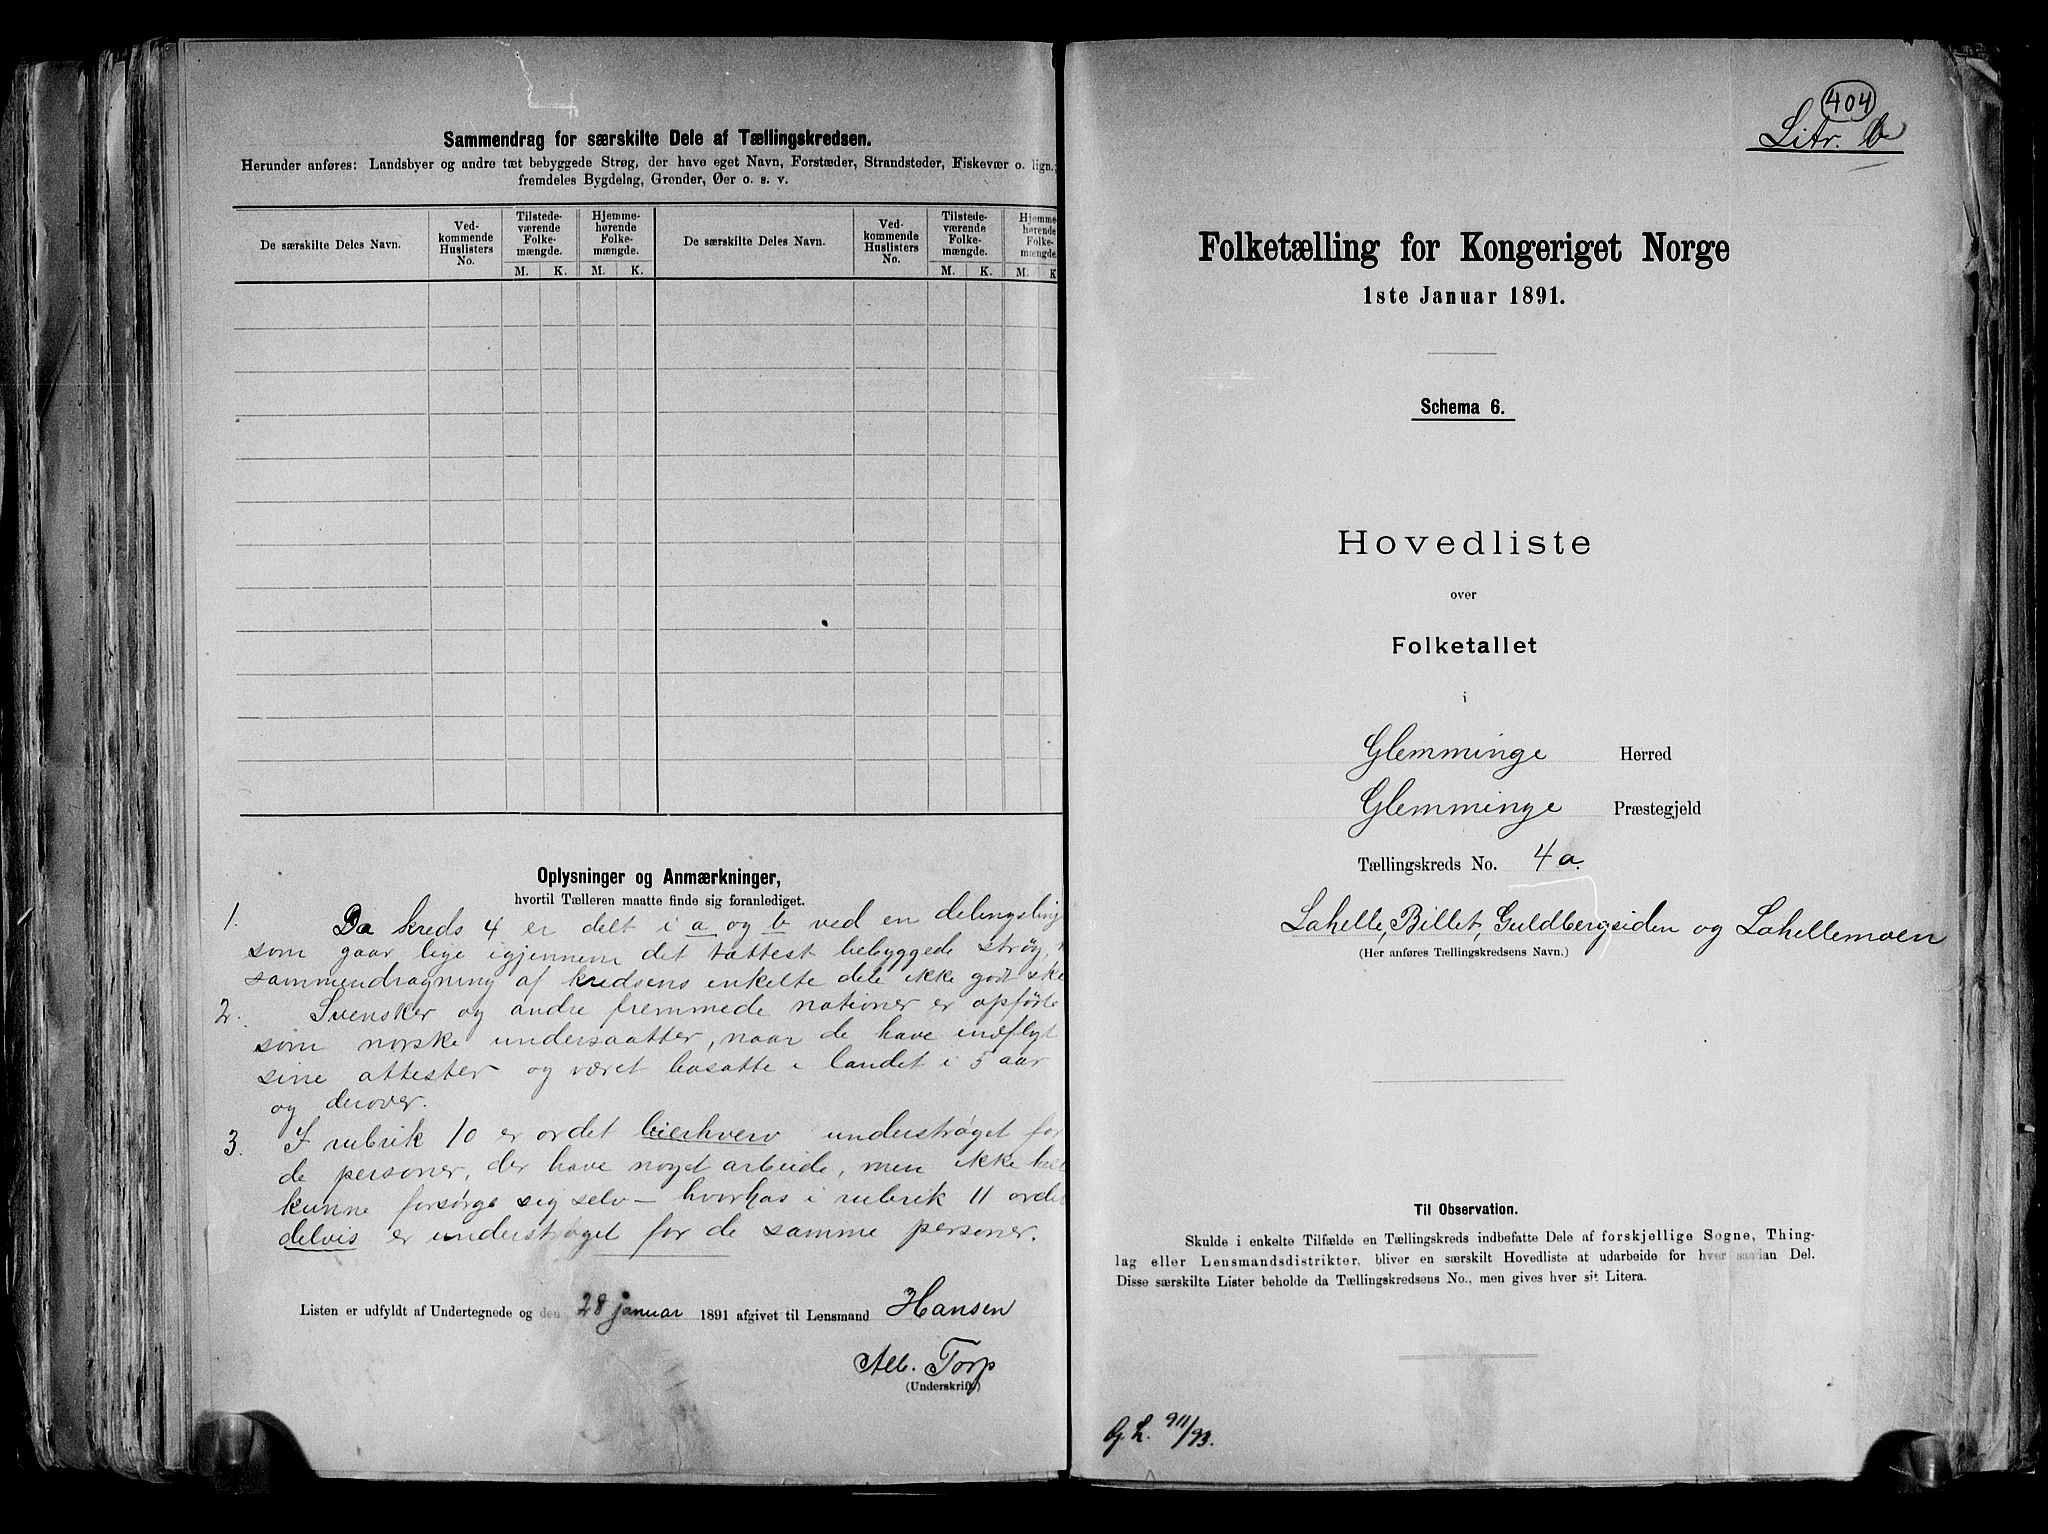 Sammendrag for særskilte Dele af Tællingskredsen.
Herunder anføres: Landsbyer og andre tæt bebyggede Strøg, der have eget Navn, Forstæder, Strandsteder, Fiskevær o. lign.;
fremdeles Bygdelag, Grender, Øer o. s. v.
De særskilte Deles Navn. Ved-kommende Huslisters No. Tilstede-værende Folke-mængde. Hjemme-hørende Folke-mængde. De særskilte Deles Navn. Ved-kommende Huslisters No. Tilstede-værende Folke-mængde. Hjemme-hørende Folke-mængde.
M. K. M. K. M. K. M. K.
Oplysninger og Anmærkninger,
hvortil Tælleren maatte finde sig foranlediget.
1. Da kreds 4 er delt i a og b ved en delingslinje
som gaar lige igjennem det tættest bebyggede strøg,
sammendragning af kredsens enkelte dele ikke godt ske
2. Svensker og andre fremmede nationer er opførte
som norske undersaatter, naar de have indflyt
sine attester og været bosatte i landet i 5 aar
og derover.
3. I rubrik 10 er ordet bierhverv understrøget for
de personer, der have noget arbeide, men ikke helt
kunne forsørge sig selv – hvorhos i rubrik 11 ordet
delvis er understrøget for de samme personer.
Listen er udfyldt af Undertegnede og den 28 januar 1891 afgivet til Lensmand Hansen
Alb. Torp
(Underskrift.)
404
Litr. b
Folketælling for Kongeriget Norge
1ste Januar 1891.
Schema 6.
Hovedliste
over
Folketallet
i
Glemminge Herred
Glemminge Præstegjeld
Tællingskreds No. 4 a.
Lahelle, Billet, Guldbergsiden og Lahellemoen
(Her anføres Tællingskredsens Navn.)
Til Observation.
Skulde i enkelte Tilfælde en Tællingskreds indbefatte Dele af forskjellige Sogne, Thing-
lag eller Lensmandsdistrikter, bliver en særskilt Hovedliste at udarbeide for hver saadan Del.
Disse særskilte Lister beholde da Tællingskredsens No., men gives hver sit Litera.
G. L. 9/11/93.